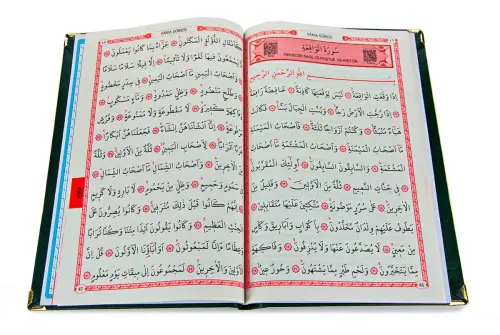 VÂKIA SÛRESİ
سُورَةُ الْوَاقِعَةِ
بِسْمِ اللّٰهِ الرَّحْمٰنِ الرَّحِيمِ
اِذَا وَقَعَتِ الْوَاقِعَةُ لَيْسَ لِوَقْعَتِهَا كَاذِبَةٌ خَافِضَةٌ رَافِعَةٌ
اِذَا رُجَّتِ الْاَرْضُ رَجًّا وَبُسَّتِ الْجِبَالُ بَسًّا فَكَانَتْ
هَبَاءً مُنْبَثًّا وَكُنْتُمْ اَزْوَاجًا ثَلٰثَةً فَاَصْحَابُ الْمَيْمَنَةِ
مَا اَصْحَابُ الْمَيْمَنَةِ وَاَصْحَابُ الْمَشْئَمَةِ مَا اَصْحَابُ
الْمَشْئَمَةِ وَالسَّابِقُونَ السَّابِقُونَ اُولٰئِكَ الْمُقَرَّبُونَ
فِي جَنَّاتِ النَّعِيمِ ثُلَّةٌ مِنَ الْاَوَّلِينَ وَقَلِيلٌ مِنَ
الْاٰخِرِينَ عَلٰى سُرُرٍ مَوْضُونَةٍ مُتَّكِئِينَ عَلَيْهَا مُتَقَابِلِينَ
يَطُوفُ عَلَيْهِمْ وِلْدَانٌ مُخَلَّدُونَ بِاَكْوَابٍ وَاَبَارِيقَ وَكَاْسٍ
مِنْ مَعِينٍ لَا يُصَدَّعُونَ عَنْهَا وَلَا يُنْزِفُونَ وَفَاكِهَةٍ
مِمَّا يَتَخَيَّرُونَ وَلَحْمِ طَيْرٍ مِمَّا يَشْتَهُونَ وَحُورٌ عِينٌ
46
VÂKIA SÛRESİ
كَاَمْثَالِ اللُّؤْلُؤِ الْمَكْنُونِ جَزَاءً بِمَا كَانُوا يَعْمَلُونَ
لَا يَسْمَعُونَ فِيهَا لَغْوًا وَلَا تَاْثِيمًا اِلَّا قِيلًا سَلَامًا سَلَامًا
وَاَصْحَابُ الْيَمِينِ مَا اَصْحَابُ الْيَمِينِ فِي سِدْرٍ مَخْضُودٍ
وَطَلْحٍ مَنْضُودٍ وَظِلٍّ مَمْدُودٍ وَمَاءٍ مَسْكُوبٍ
وَفَاكِهَةٍ كَثِيرَةٍ لَا مَقْطُوعَةٍ وَلَا مَمْنُوعَةٍ وَفُرُشٍ
مَرْفُوعَةٍ اِنَّا اَنْشَاْنَاهُنَّ اِنْشَاءً فَجَعَلْنَاهُنَّ اَبْكَارًا
عُرُبًا اَتْرَابًا لِاَصْحَابِ الْيَمِينِ ثُلَّةٌ مِنَ الْاَوَّلِينَ وَثُلَّةٌ
مِنَ الْاٰخِرِينَ وَاَصْحَابُ الشِّمَالِ مَا اَصْحَابُ الشِّمَالِ
فِي سَمُومٍ وَحَمِيمٍ وَظِلٍّ مِنْ يَحْمُومٍ لَا بَارِدٍ وَلَا كَرِيمٍ
اِنَّهُمْ كَانُوا قَبْلَ ذٰلِكَ مُتْرَفِينَ وَكَانُوا يُصِرُّونَ عَلَى
الْحِنْثِ الْعَظِيمِ وَكَانُوا يَقُولُونَ اَئِذَا مِتْنَا وَكُنَّا تُرَابًا
وَعِظَامًا ءَاِنَّا لَمَبْعُوثُونَ اَوَاٰبَاؤُنَا الْاَوَّلُونَ قُلْ اِنَّ
الْاَوَّلِينَ وَالْاٰخِرِينَ لَمَجْمُوعُونَ اِلٰى مِيقَاتِ يَوْمٍ مَعْلُومٍ
47